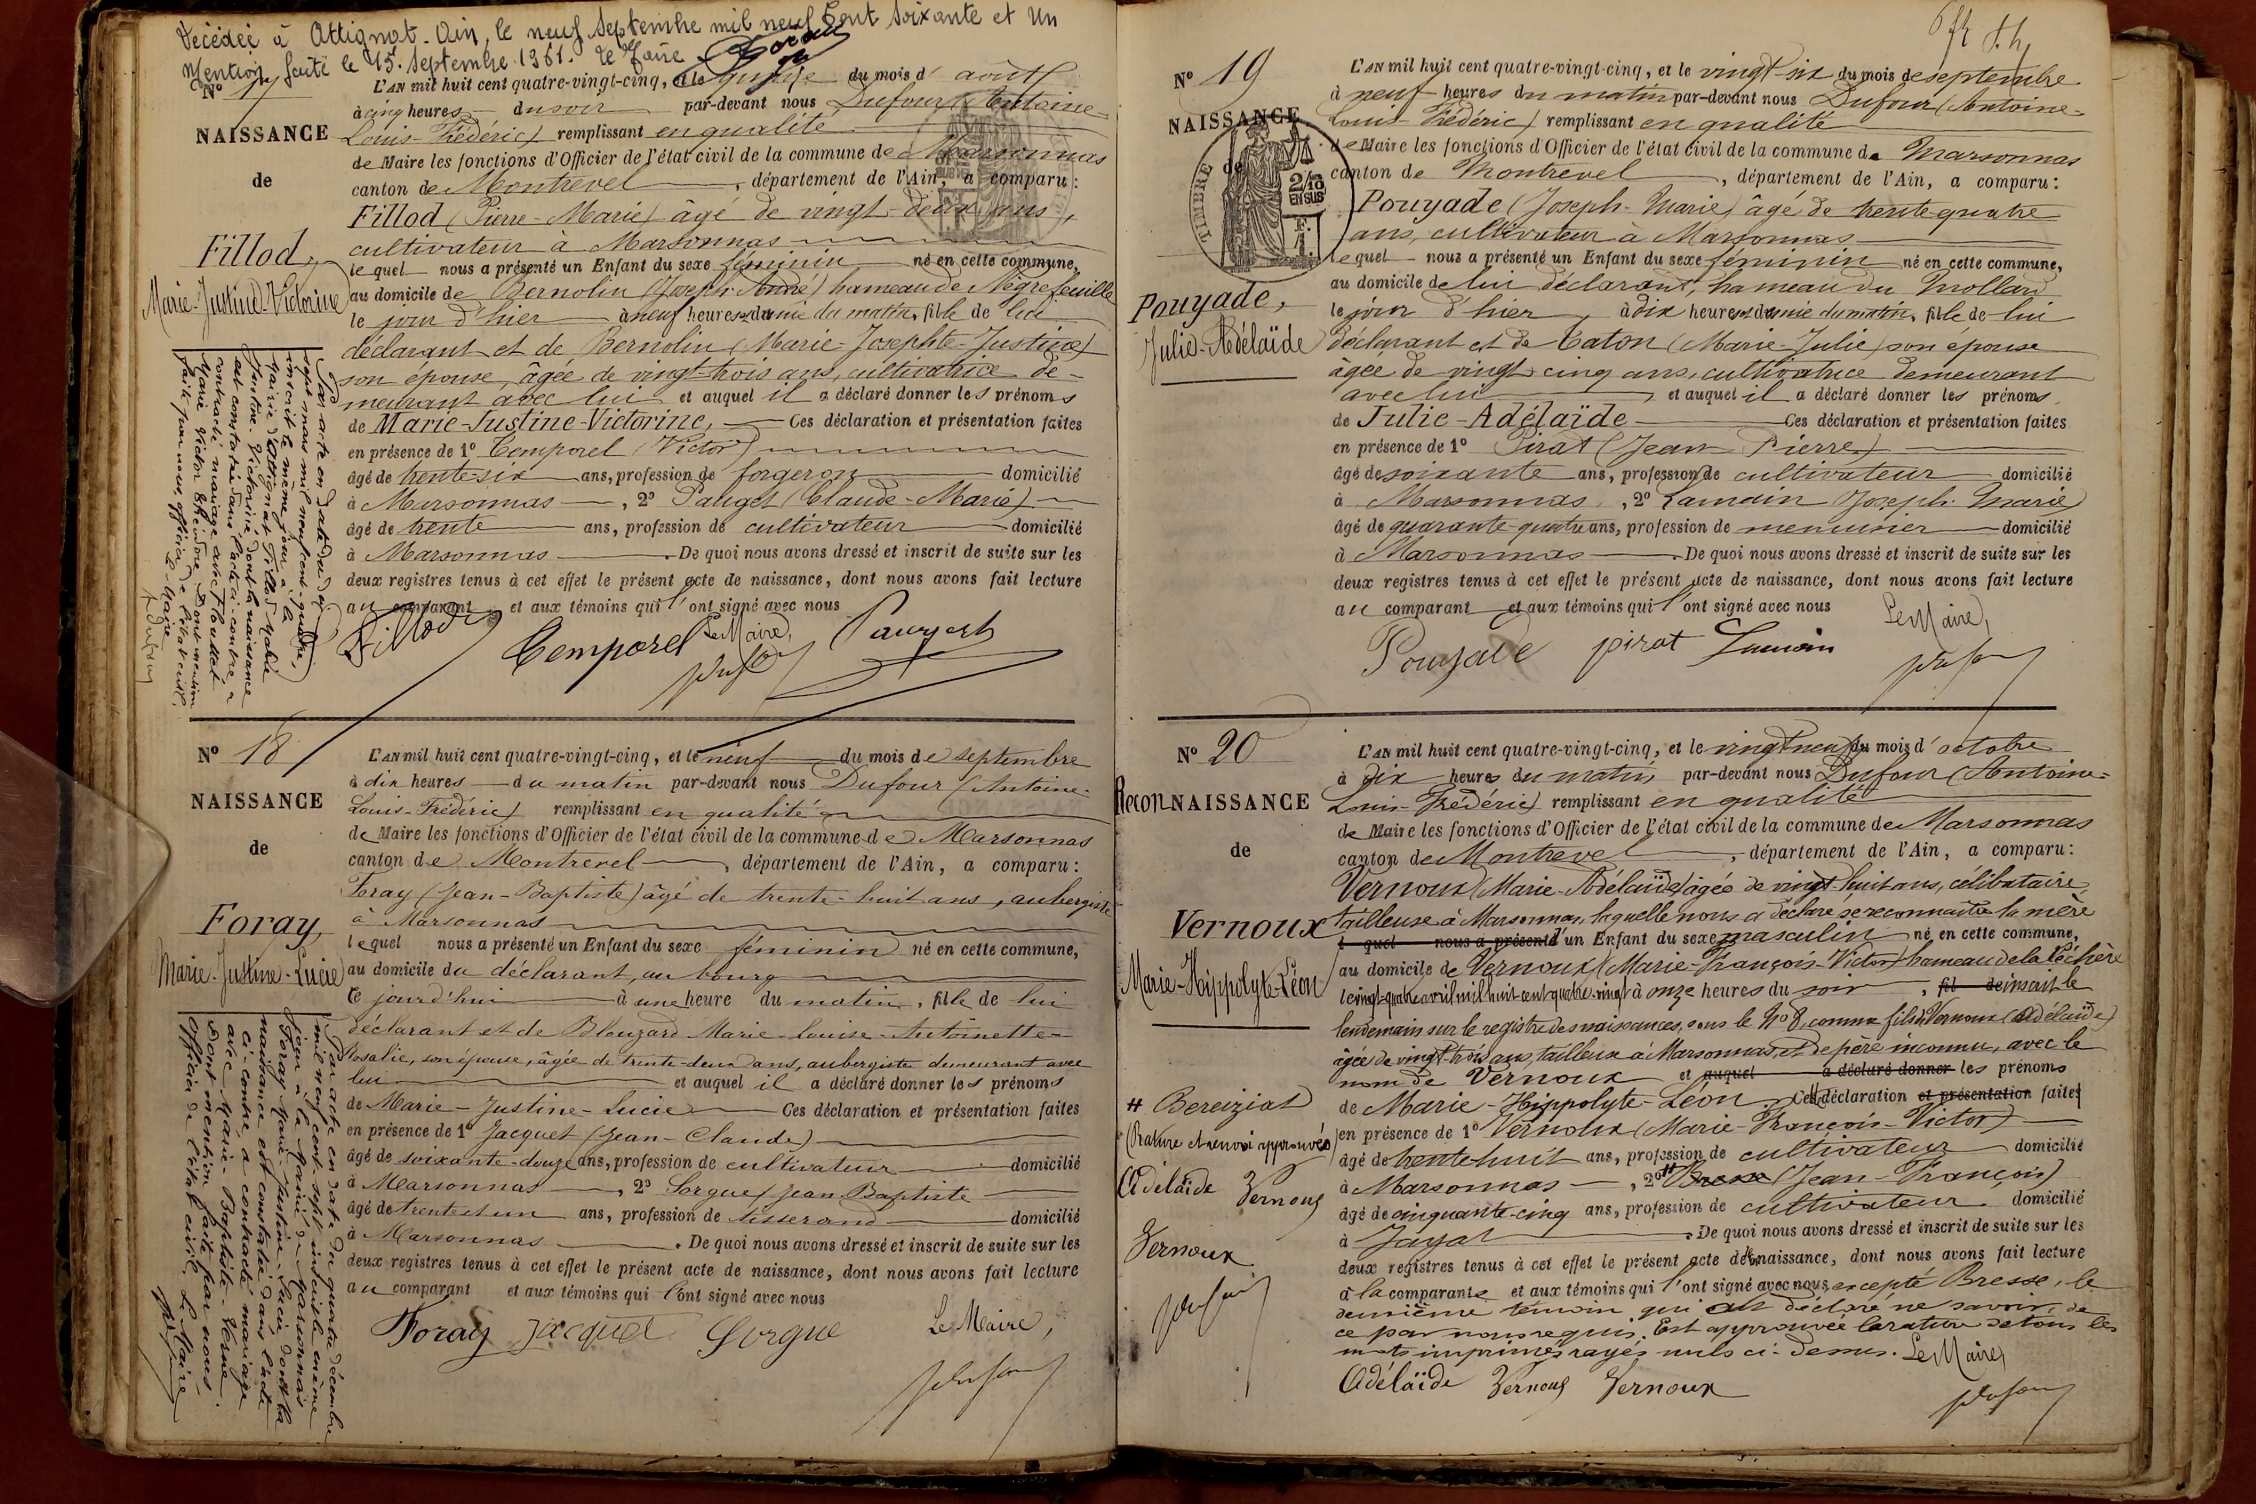 Décédée à Attignat-Ain, le neuf Septembre mil neuf Cent Soixante et Un
Mention faite le 15 Septembre 1961. Le Maire
N° 17
NAISSANCE
de
Fillod,
Marie-Justine-Victorine
L'AN mil huit cent quatre-vingt-cinq, et le quinze du mois d'août
à cinq heures du soir par-devant nous Dufour (Antoine-
Louis-Frédéric) remplissant en qualité
de Maire les fonctions d'Officier de l'état civil de la commune de Marsonnas
canton de Montrevel, département de l'Ain, a comparu:
Fillod (Pierre-Marie) âgé de vingt-deux ans,
cultivateur à Marsonnas
lequel nous a présenté un Enfant du sexe féminin né en cette commune,
au domicile de Bernolin (Joseph-André) hameau de Nègrefeuille
le jour d'hier à neuf heures et demie du matin, fille de lui
déclarant et de Bernolin (Marie-Josephte-Justine)
son épouse, âgée de vingt-trois ans, cultivatrice de-
meurant avec lui et auquel il a déclaré donner les prénoms
de Marie-Justine-Victorine, Ces déclaration et présentation faites
en présence de 1° Temporel (Victor)
âgé de trente-six ans, profession de forgeron domicilié
à Marsonnas, 2° Pauget (Claude-Marie)
âgé de trente ans, profession de cultivateur domicilié
à Marsonnas. De quoi nous avons dressé et inscrit de suite sur les
deux registres tenus à cet effet le présent acte de naissance, dont nous avons fait lecture
au comparant et aux témoins qui l'ont signé avec nous
Fillod Temporel Le Maire, Pauget
Dufour
Par acte en date du dix-
sept mars mil neuf cent quatre,
inscrit le même jour à la
mairie d'Attignat Fillod Marie
Justine Victorine, dont la naissance
est constatée dans l'acte ci-contre, a
contracté mariage avec
Marie Victor Théodore. Dont mention
faite par nous, officier de l'état civil.
Le Maire
Dufour
N° 18
NAISSANCE
de
Foray,
Marie-Justine-Lucie
L'AN mil huit cent quatre-vingt-cinq, et le neuf du mois de septembre
à dix heures du matin par-devant nous Dufour (Antoine-
Louis-Frédéric) remplissant en qualité
de Maire les fonctions d'Officier de l'état civil de la commune de Marsonnas
canton de Montrevel, département de l'Ain, a comparu:
Foray (Jean-Baptiste) âgé de trente-huit ans, aubergiste
à Marsonnas
lequel nous a présenté un Enfant du sexe féminin né en cette commune,
au domicile du déclarant, au bourg
le jourd'hui à une heure du matin, fille de lui
déclarant et de Blouzard Marie-Louise-Antoinette-
Rosalie, son épouse, âgée de trente-deux ans, aubergiste demeurant avec
lui et auquel il a déclaré donner les prénoms
de Marie-Justine-Lucie Ces déclaration et présentation faites
en présence de 1° Jacquet (Jean-Claude)
âgé de soixante-douze ans, profession de cultivateur domicilié
à Marsonnas, 2° Sorgue (Jean Baptiste
âgé de trente et un ans, profession de tisserand domicilié
à Marsonnas. De quoi nous avons dressé et inscrit de suite sur les
deux registres tenus à cet effet le présent acte de naissance, dont nous avons fait lecture
au comparant et aux témoins qui l'ont signé avec nous
Foray Jacquet Sorgue Le Maire,
Dufour
Par acte en date du quatre décembre
mil neuf cent sept inscrit le même
jour à la mairie de Marsonnas
Foray Marie-Justine-Lucie dont la
naissance est constatée dans l'acte
ci-contre, a contracté mariage
avec Marie-Baptiste Verne.
Dont mention faite par nous
officier de l'état civil.
Le Maire
6fr
N° 19
NAISSANCE
de
TIMBRE
2/10
EN SUS
Pouyade,
Julie-Adélaïde
L'AN mil huit cent quatre-vingt-cinq, et le vingt-six du mois de septembre
à neuf heures du matin par-devant nous Dufour (Antoine-
Louis-Frédéric) remplissant en qualité
de Maire les fonctions d'Officier de l'état civil de la commune de Marsonnas
canton de Montrevel, département de l'Ain, a comparu:
Pouyade (Joseph-Marie) âgé de trente-quatre
ans, cultivateur à Marsonnas
lequel nous a présenté un Enfant du sexe féminin né en cette commune,
au domicile de lui déclarant, hameau du Mollard
le jour d'hier, à dix heures et demie du matin, fille de lui
déclarant et de Caton (Marie-Julie) son épouse
âgée de vingt-cinq ans, cultivatrice demeurant
avec lui, et auquel il a déclaré donner les prénoms
de Julie-Adélaïde Ces déclaration et présentation faites
en présence de 1° Pirat (Jean Pierre)
âgé de soixante ans, profession de cultivateur domicilié
à Marsonnas, 2° Lamain Joseph-Marie
âgé de quarante-quatre ans, profession de menuisier domicilié
à Marsonnas. De quoi nous avons dressé et inscrit de suite sur les
deux registres tenus à cet effet le présent acte de naissance, dont nous avons fait lecture
au comparant et aux témoins qui l'ont signé avec nous
Le Maire,
Pouyade pirat Lamain
Dufour
N° 20
ReconNAISSANCE
de
Vernoux
Marie-Hippolyte-Léon
L'AN mil huit cent quatre-vingt-cinq, et le vingt neuf du mois d'octobre
à dix heures du matin, par-devant nous Dufour (Antoine-
Louis-Frédéric) remplissant en qualité
de Maire les fonctions d'Officier de l'état civil de la commune de Marsonnas
canton de Montrevel, département de l'Ain, a comparu:
Vernoux (Marie-Adélaïde) âgée de vingt-huit ans, célibataire,
tailleuse à Marsonnas, laquelle nous a déclaré se reconnaître la mère
l quel nous a présenté d'un Enfant du sexe masculin né en cette commune,
au domicile de Vernoux (Marie-François-Victor) hameau de la Péchère
le vingt-quatre avril mil huit cent quatre-vingt à onze heures du soir, fil de inscrit le
lendemain sur le registre des naissances, sous le N° 8, comme fils de Vernoux (Adélaïde)
âgée de vingt-trois ans, tailleuse à Marsonnas, et de père inconnu, avec le
nom de Vernoux et auquel a déclaré donner les prénoms
de Marie-Hippolyte-Léon. Cette déclaration et présentation faite
en présence de 1° Vernoux (Marie-François-Victor)
âgé de trente-huit ans, profession de cultivateur domicilié
à Marsonnas, 2° # Bresse (Jean-François)
âgé de cinquante-cinq ans, profession de cultivateur domicilié
à Jayat. De quoi nous avons dressé et inscrit de suite sur les
deux registres tenus à cet effet le présent acte de naissance, dont nous avons fait lecture
à la comparante et aux témoins qui l'ont signé avec nous, excepté Bresse, le
deuxième témoin qui a déclaré ne savoir, de
ce par nous requis. Est approuvée la rature de tous les
mots imprimés rayés nuls ci-dessus. Le Maire,
Adélaïde Vernoux Vernoux
Dufour
# Bereiziat
(Rature et renvoi approuvés)
Adélaïde Vernoux
Vernoux
Dufour